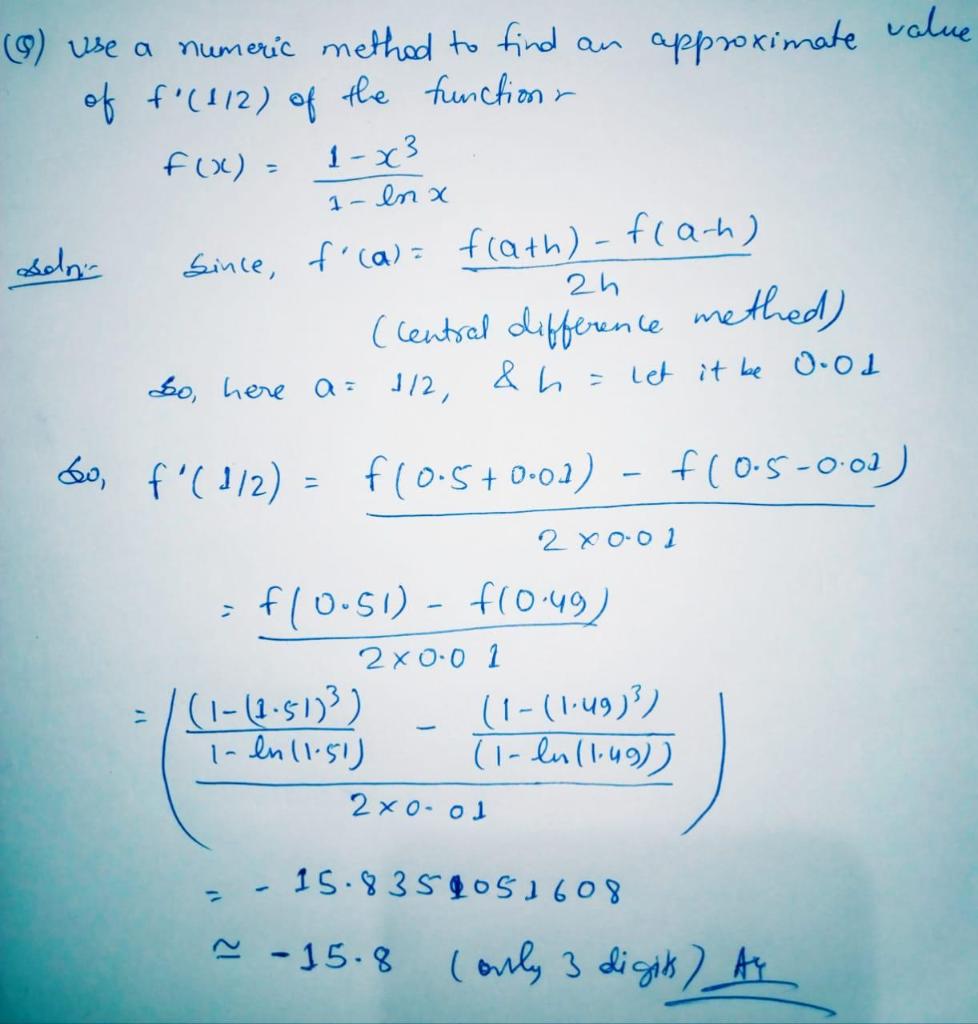 (Q) Use a numeric method to find an approximate value
of f'(1/2) of the function
f(x) = 1-x³ / 1-ln x
Soln:- Since, f'(a) = f(a+h) - f(a-h) / 2h
(Central difference method)
So, here a = 1/2, & h = let it be 0.01
So, f'(1/2) = f(0.5+0.01) - f(0.5-0.01) / 2×0.01
= f(0.51) - f(0.49) / 2×0.01
= ( (1-(1.51)³) / 1-ln(1.51) - (1-(1.49)³) / (1-ln(1.49)) / 2×0.01 )
= -15.8351051608
≃ -15.8 (only 3 digits)